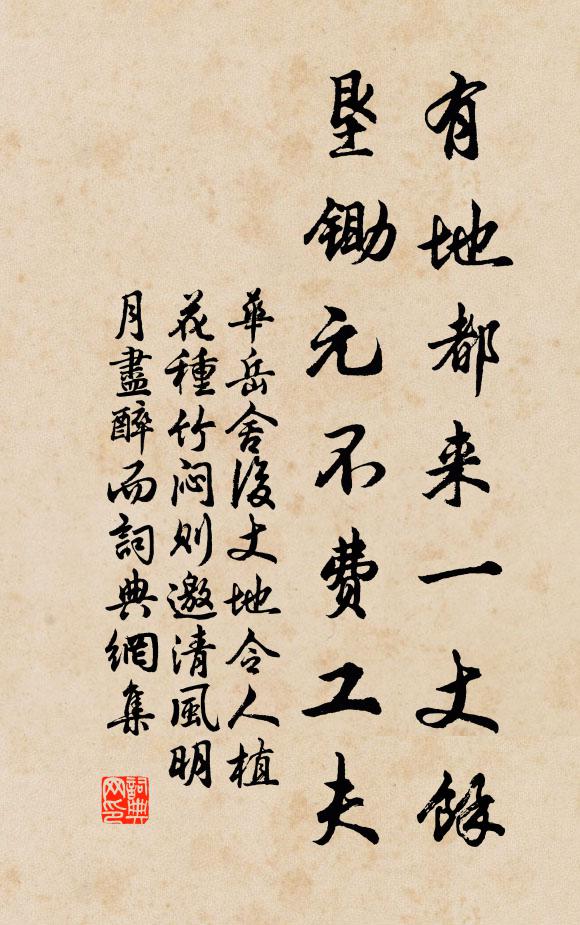 有地都来一丈餘
垦锄元不费工夫
華岳舍後丈地令人植
花種竹闷则邀清風明
月盡醉而詞典網集
詞典网印